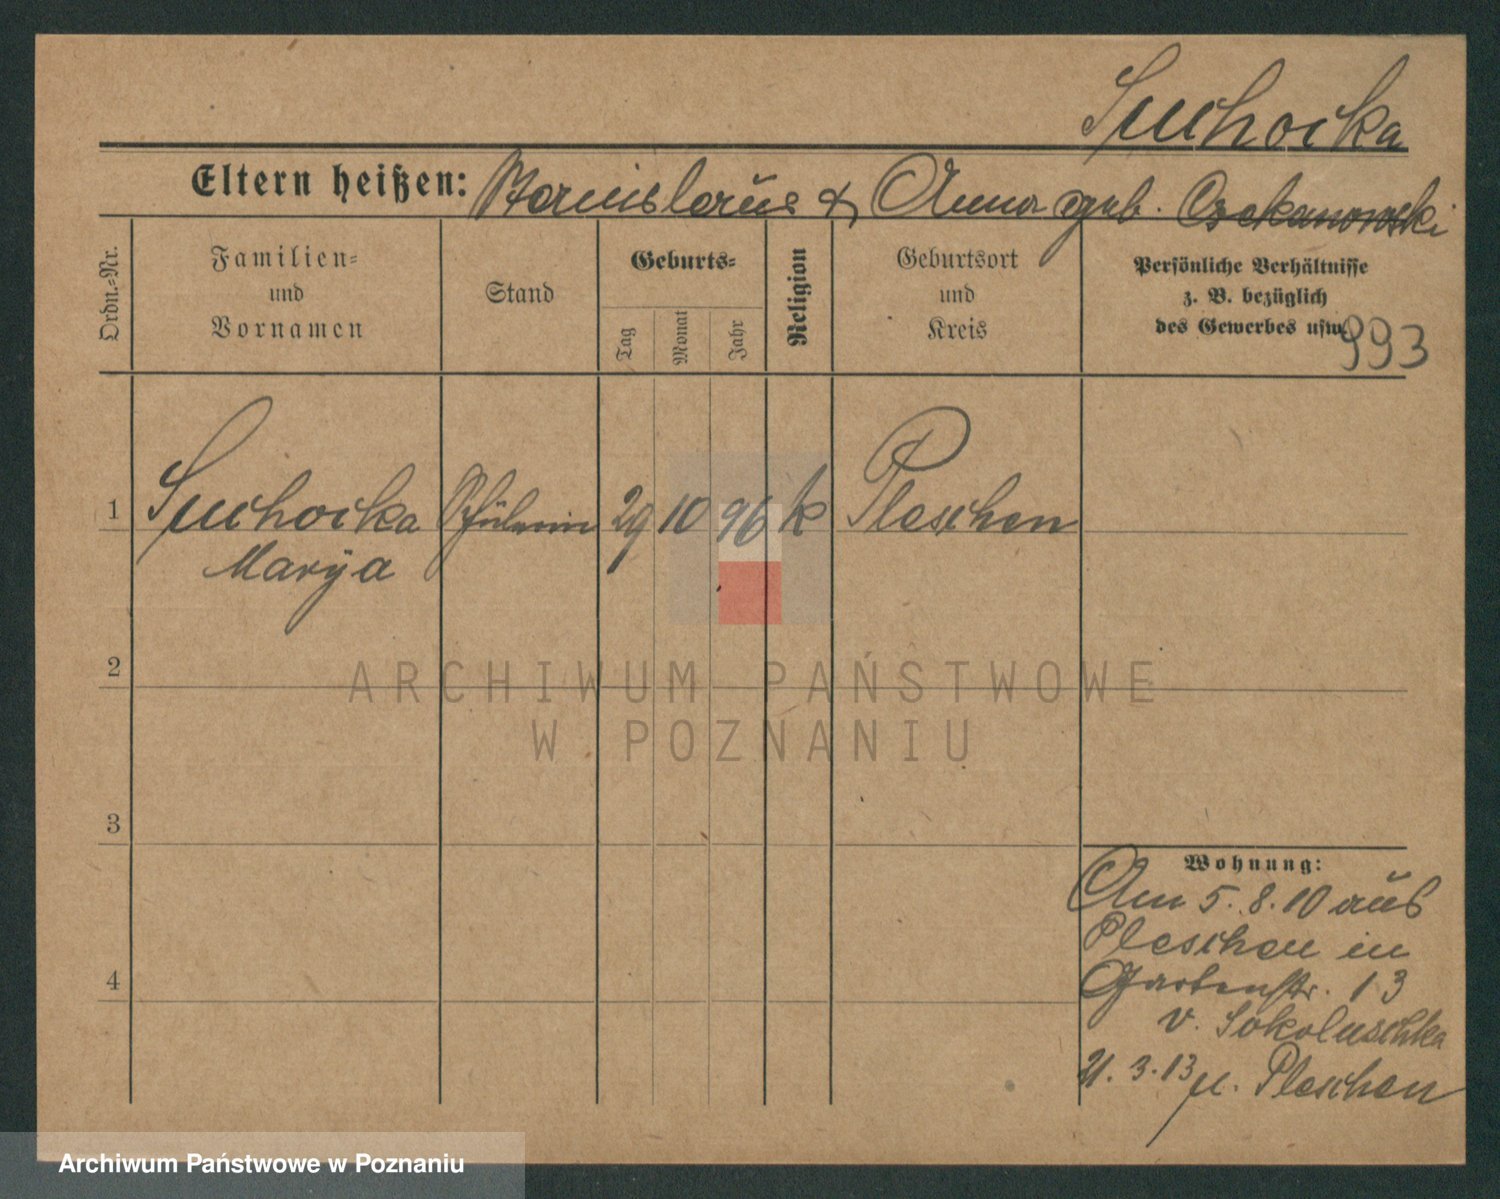 Suchocka
Eltern heißen: Stanislaus & Anna geb. Czekanowski
Ordn.-Nr.
Familien-
und
Vornamen
Stand
Geburts-
Tag
Monat
Jahr
Religion
Geburtsort
und
Kreis
Persönliche Verhältnisse
z. B. bezüglich
des Gewerbes usw.
993
1 Suchocka Schülerin 29 10 96 k Pleschen
Marÿa
2
3
4
Wohnung:
Am 5. 8. 10 aus
Pleschen in
Gartenstr. 13
v. Sokoluschka
21. 3. 13 n. Pleschen
ARCHIWUM PAŃSTWOWE
W POZNANIU
Archiwum Państwowe w Poznaniu